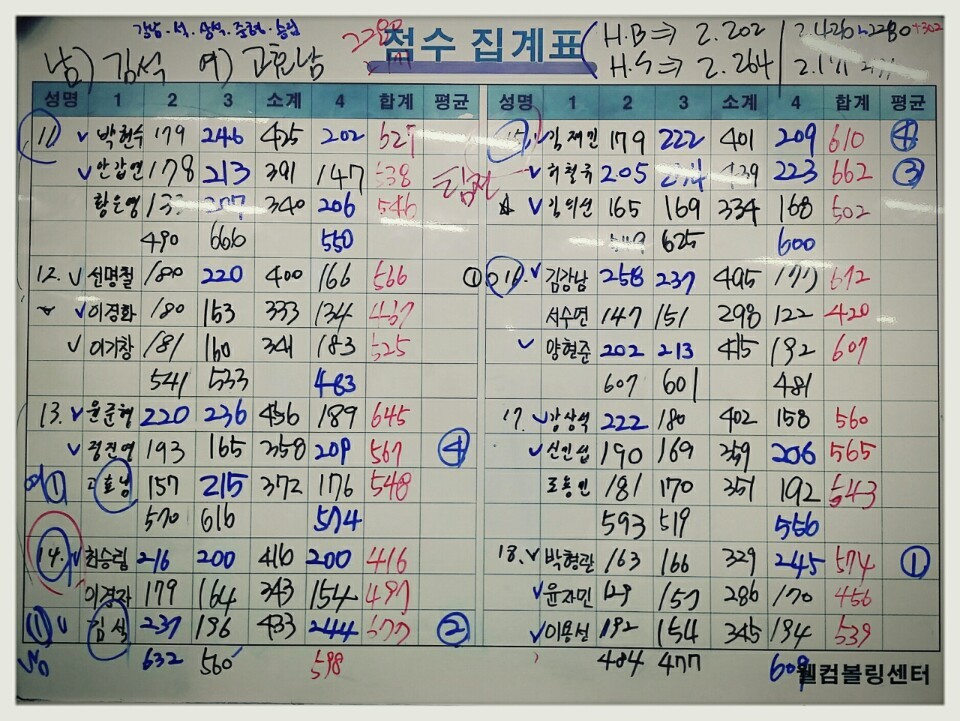 강남·석·상석·준형·승림
남) 김석 여) 고효남
점수 집계표
H.B ⇒ 2.202
H.S ⇒ 2.264
성명 1 2 3 소계 4 합계 평균 성명 1 2 3 소계 4 합계 평균
11 박현수 179 246 425 202 627 김재민 179 222 401 209 610 ④
안갑연 178 213 391 147 538 205 223 662 ③
황은영 340 206 546 165 169 334 168 502
490 666 550 625 600
12. 선명철 180 220 400 166 566 ① 16. 김강남 258 237 495 177 672
이경화 180 153 333 134 서수연 147 151 298 122 420
이기창 181 160 341 183 525 양현준 202 213 415 192 607
541 533 483 607 601 481
13. 윤준형 220 236 456 189 645 17. 강상석 222 180 402 158 560
정진영 193 165 358 209 567 ④ 신인섭 190 169 359 206 565
여① 고효남 157 215 372 176 548 181 170 351 192 543
570 616 574 593 519 556
14. 최승림 216 200 416 200 416 18. 박형관 163 166 329 245 574 ①
이경자 179 164 343 154 497 윤자민 129 157 286 170 456
① 김석 237 196 433 244 677 ② 이용선 192 154 345 194 539
632 560 598 484 477 609
웰컴볼링센터